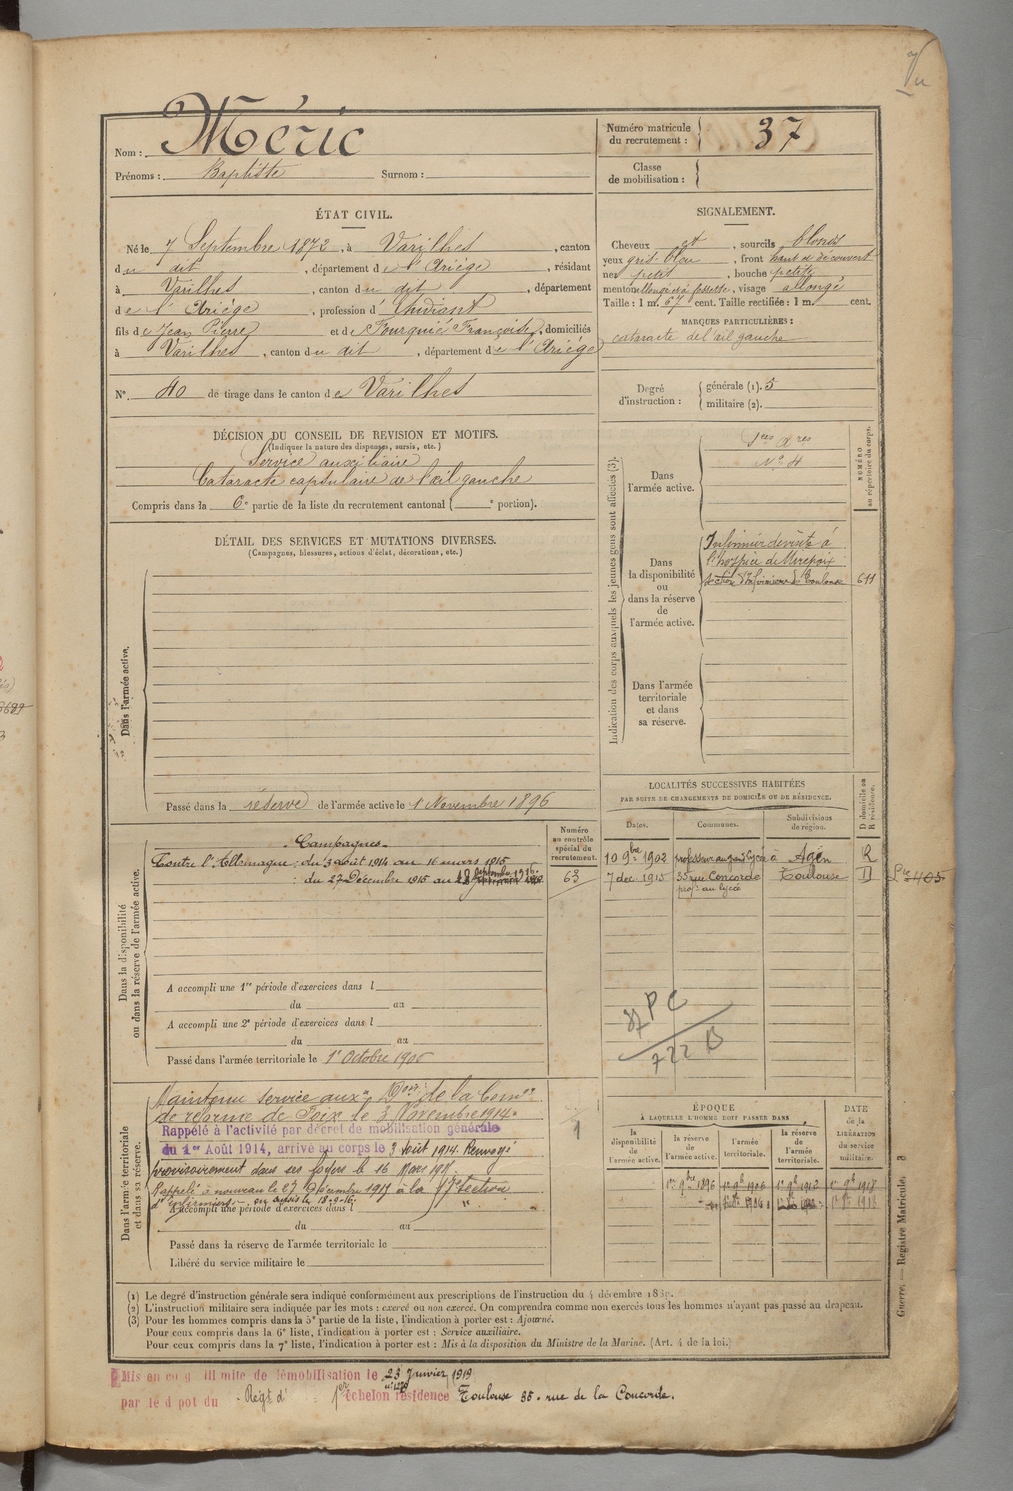 Vu
Nom : Méric
Prénoms : Baptiste Surnom :
Numéro matricule du recrutement : 37
Classe de mobilisation :
ÉTAT CIVIL.
Né le 7 Septembre 1872, à Varilhes, canton
du dit, département de l'Ariège, résidant
à Varilhes, canton du dit, département
de l'Ariège, profession d'étudiant
fils de Jean Pierre et de Fourquié Françoise, domiciliés
à Varilhes, canton du dit, département de l'Ariège
N° 40 de tirage dans le canton de Varilhes
SIGNALEMENT.
Cheveux et, sourcils blonds
yeux gris bleu, front haut et découvert
nez petit, bouche petite
menton allongé et à fossette, visage allongé
Taille : 1 m. 67 cent. Taille rectifiée : 1 m. cent.
MARQUES PARTICULIÈRES :
cataracte de l'œil gauche
Degré d'instruction :
générale (1). 5
militaire (2).
DÉCISION DU CONSEIL DE REVISION ET MOTIFS.
(Indiquer la nature des dispenses, sursis, etc.)
Service auxiliaire
Cataracte capsulaire de l'œil gauche
Compris dans la 6e partie de la liste du recrutement cantonal ( e portion).
DÉTAIL DES SERVICES ET MUTATIONS DIVERSES.
(Campagnes, blessures, actions d'éclat, décorations, etc.)
Dans l'armée active.
Passé dans la réserve de l'armée active le 1 Novembre 1896
Indication des corps auxquels les jeunes gens sont affectés (3).
NUMÉRO au répertoire du corps.
Dans l'armée active.
N° 4
Dans la disponibilité ou dans la réserve de l'armée active.
Infirmier de visite à
l'hospice de Mirepoix
section d'Infirmiers de Toulouse 611
Dans l'armée territoriale et dans sa réserve.
LOCALITÉS SUCCESSIVES HABITÉES
PAR SUITE DE CHANGEMENTS DE DOMICILE OU DE RÉSIDENCE.
Dates. Communes. Subdivisions de région. D domicile ou R résidence.
10 9bre 1902 professeur au grand lycée à Agen R
7 dec 1913 35 rue Concorde Toulouse D
prof. au lycée
Dans la disponibilité ou dans la réserve de l'armée active.
Numéro au contrôle spécial du recrutement.
Campagnes
Contre l'Allemagne : du 3 août 1914 au 16 mars 1915
: du 27 Décembre 1915 au 18 septembre 1916.
63
A accompli une 1re période d'exercices dans l
du au
A accompli une 2e période d'exercices dans l
du au
Passé dans l'armée territoriale le 1er Octobre 1906
37 PC
722 B
Dans l'armée territoriale et dans sa réserve.
Maintenu service auxre Don de la Comon
de réforme de Foix le 3 Novembre 1914.
Rappelé à l'activité par décret de mobilisation générale
du 1er Août 1914, arrivé au corps le 3 Août 1914. Renvoyé
provisoirement dans ses foyers le 16 Mars 1915.
Rappelé à nouveau le 27 Décembre 1915 à la 17e section
d'infirmiers - en sursis le 18-9-16.
A accompli une période d'exercices dans l
du au
Passé dans la réserve de l'armée territoriale le
Libéré du service militaire le
1
ÉPOQUE
À LAQUELLE L'HOMME DOIT PASSER DANS
la disponibilité de l'armée active. la réserve de l'armée active. l'armée territoriale. la réserve de l'armée territoriale.
DATE de la LIBÉRATION du service militaire.
1er 9bre 1896 1er 9bre 1906 1er 9bre 1912 1er 9bre 1918
(1) Le degré d'instruction générale sera indiqué conformément aux prescriptions de l'instruction du 4 décembre 1889.
(2) L'instruction militaire sera indiquée par les mots : exercé ou non exercé. On comprendra comme non exercés tous les hommes n'ayant pas passé au drapeau.
(3) Pour les hommes compris dans la 5e partie de la liste, l'indication à porter est : Ajourné.
Pour ceux compris dans la 6e liste, l'indication à porter est : Service auxiliaire.
Pour ceux compris dans la 7e liste, l'indication à porter est : Mis à la disposition du Ministre de la Marine. (Art. 4 de la loi.)
Guerre. — Registre Matricule. 3
Mis en congé illimité de démobilisation le 23 Janvier 1919
par le dépôt du Régt d' 1er échelon résidence Toulouse 35. rue de la Concorde.